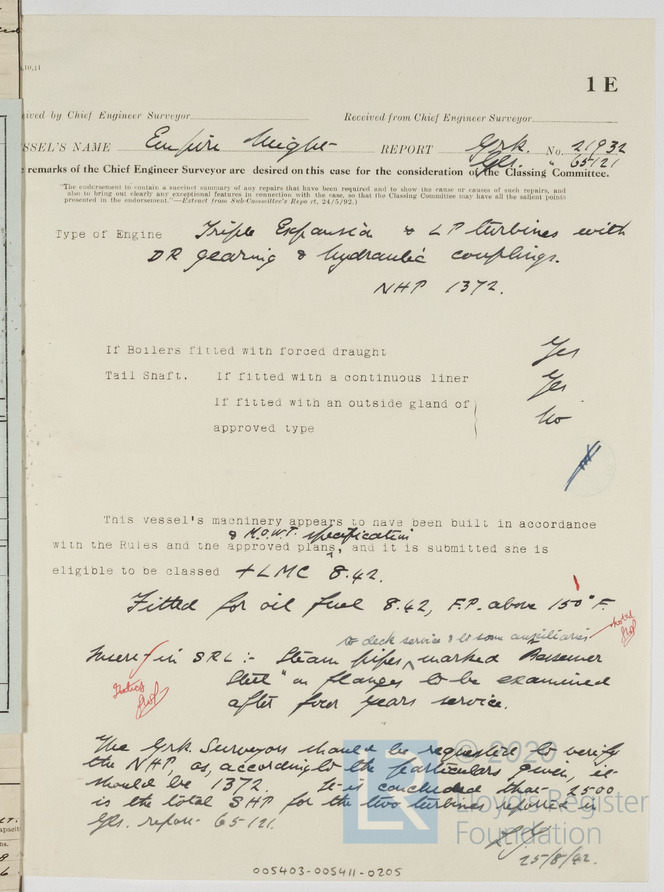 1 E
ived by Chief Engineer Surveyor
Received from Chief Engineer Surveyor
SSEL'S NAME Empire REPORT Grk. No. 21932
Gls. " 65121
remarks of the Chief Engineer Surveyor are desired on this case for the consideration of the Classing Committee.
"The endorsement to contain a succinct summary of any repairs that have been required and to show the cause or causes of such repairs, and
also to bring out clearly any exceptional features in connection with the case, so that the Classing Committee may have all the salient points
presented in the endorsement."—Extract from Sub-Committee's Report, 24/5/92.)
Type of Engine Triple Expansion & LP turbines with
DR gearing & hydraulic couplings.
NHP 1372.
If Boilers fitted with forced draught Yes
Tail Shaft. If fitted with a continuous liner Yes
If fitted with an outside gland of
approved type No
This vessel's machinery appears to have been built in accordance
& M.O.W.T. specification
with the Rules and the approved plans, and it is submitted she is
eligible to be classed +LMC 8.42.
Fitted for oil fuel 8.42, F.P. above 150° F.
to deck service & to some auxiliaries
noted
Insert in SRL :- Steam pipes marked "Bessemer
Steel" on flanges to be examined
after four years service.
The Grk. Surveyors should be requested to verify
the NHP as, according to the particulars given, it
should be 1372. It is concluded that 2500
is the total SHP for the two turbines reported in
Gls. report 65121.
25/8/42.
005403-005411-0205
© 2020
Lloyd's Register
Foundation
LR